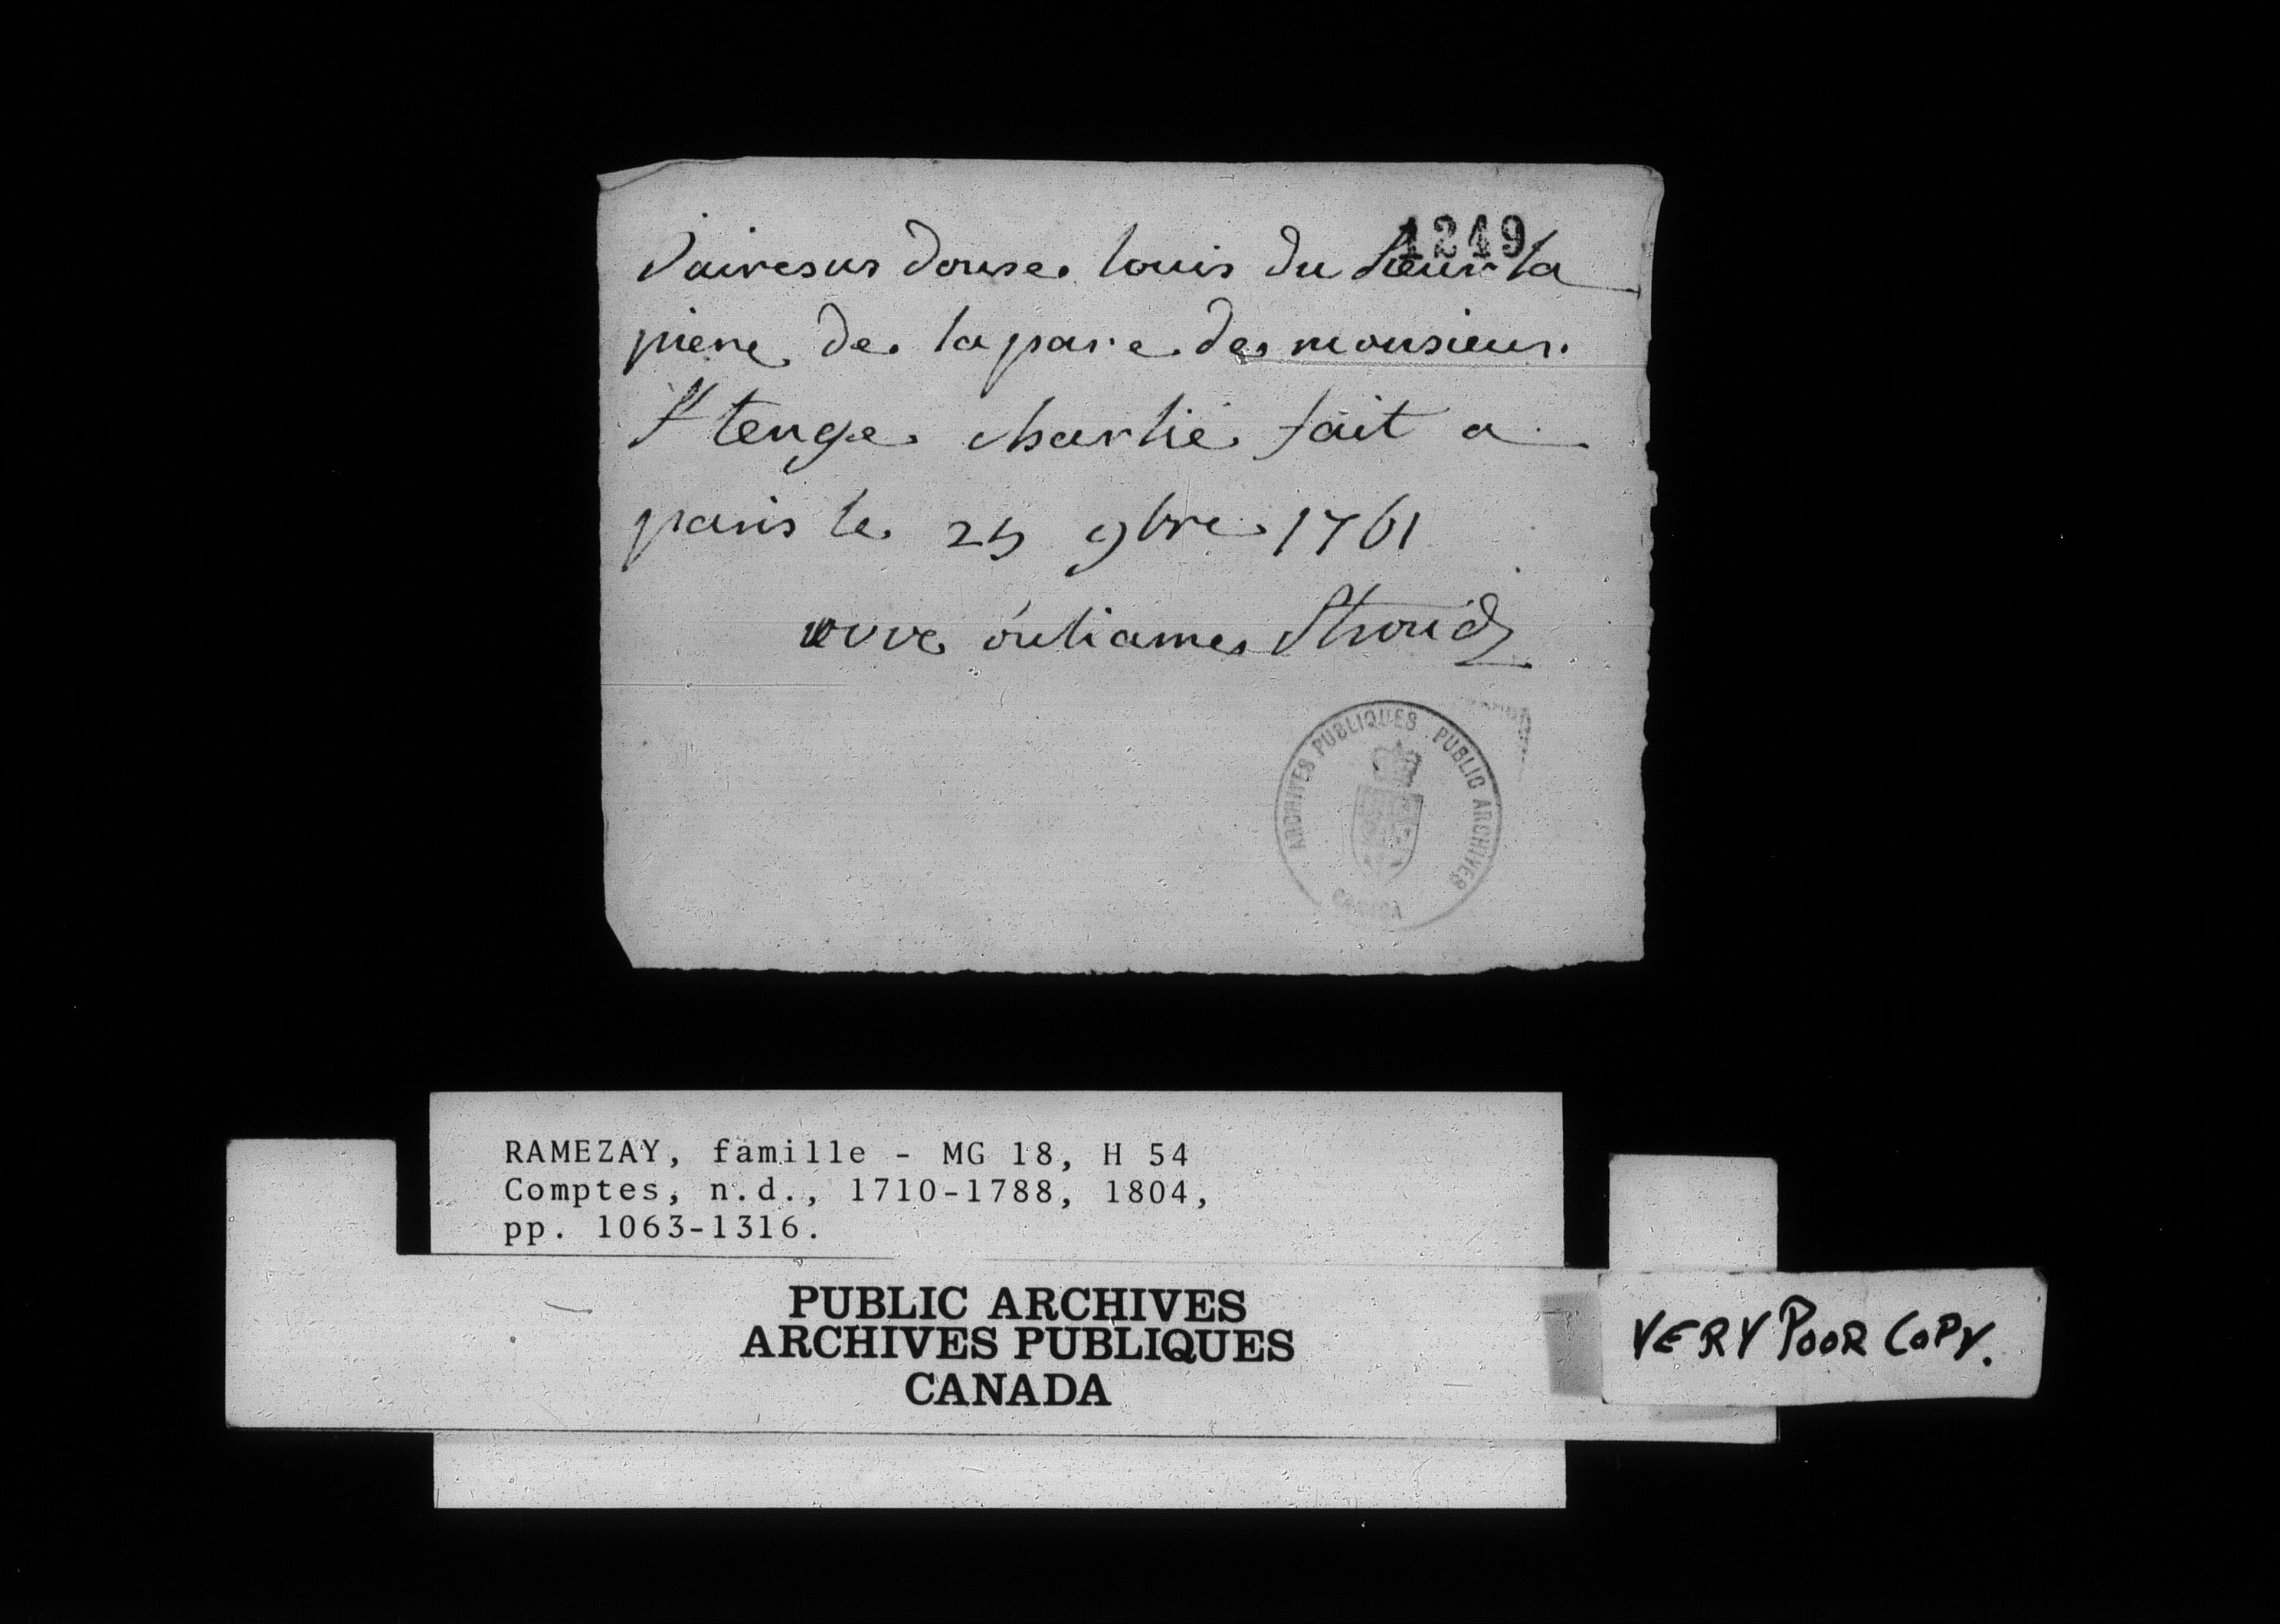 1249
Jairesus douse louis du sieur la
piere de la par e de monsieur
St tenge charlie fait a
paris le 25 9bre 1761
veve ouliames Stroud
ARCHIVES PUBLIQUES . PUBLIC ARCHIVES
CANADA
RAMEZAY, famille - MG 18, H 54
Comptes, n.d., 1710-1788, 1804,
pp. 1063-1316.
PUBLIC ARCHIVES
ARCHIVES PUBLIQUES
CANADA
VERY POOR COPY.